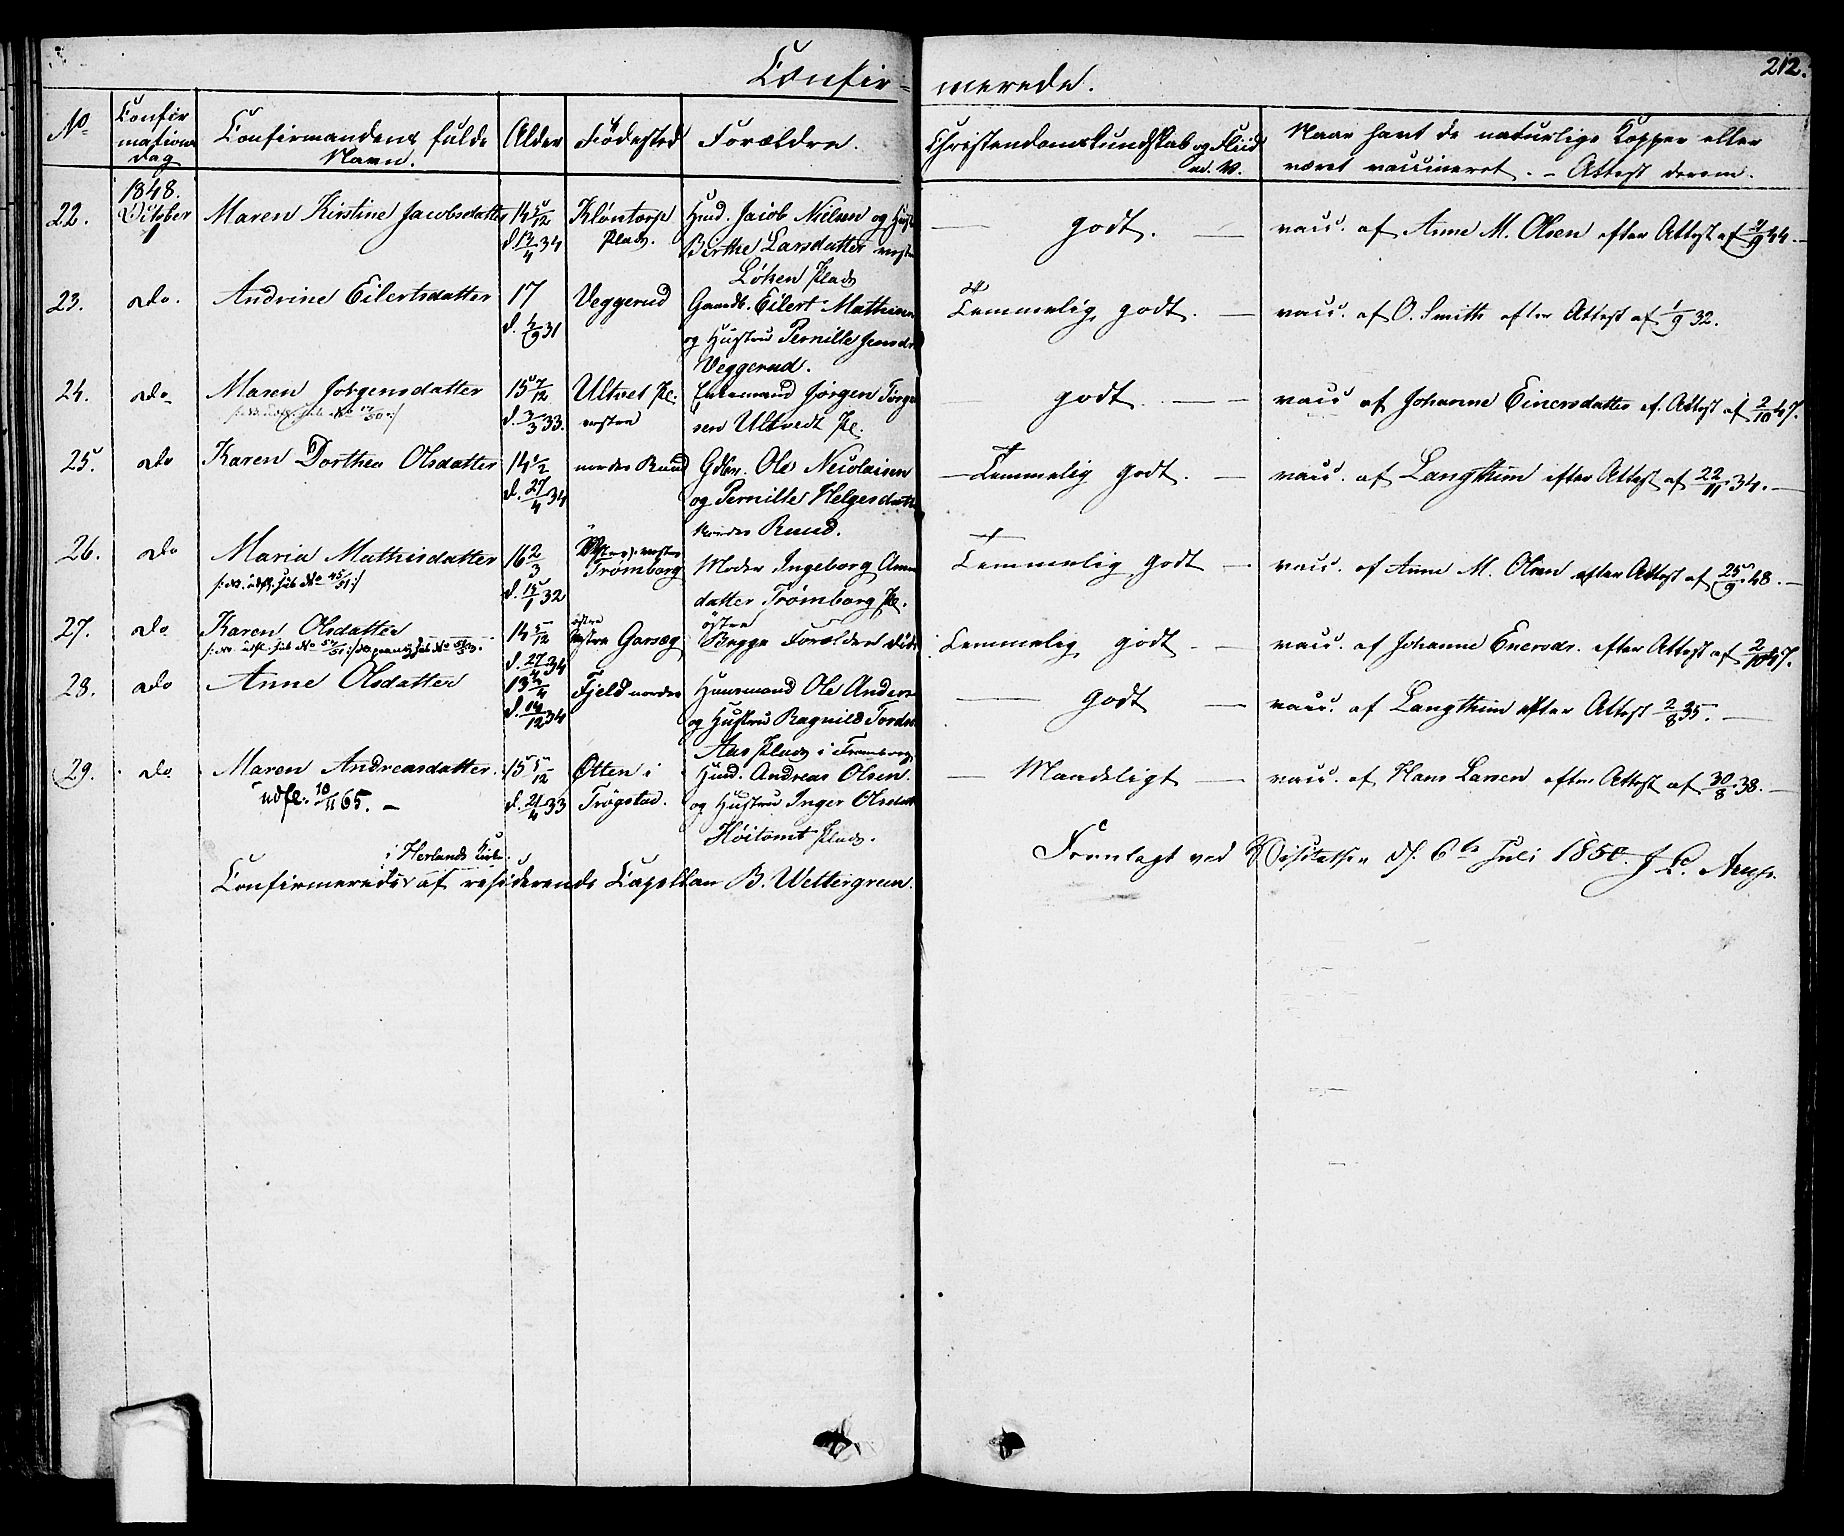 Confirmerede.
212.
No
Confirmations Dag
Confirmandens fulde Navn.
Alder
Fødested
Forældre.
Christendomskundskab og Fliid
Naar havt de naturlige Kopper eller
været vaccineret. - Attest derom.
1848.
22. October 1 Maren Kirstine Jacobsdatter 14 5/12 Kløntorp Husd. Jacob Nielsen og
Plads. Birthe Larsdatter
Løken Plads
godt. vacc. af Anne M. Olsen efter Attest af
23. do. Andrine Eilertsdatter 17 Veggerud Gaardb. Eilert Mathisen
og Hustru Pernille
Veggerud.
Temmelig godt. vacc. af O. Smith efter Attest af 1/9 32.
24. do. Maren Jørgensdatter 15 7/12 Ultvet Pl. Jørgen
d. 3/3 33. vestre Ultvedt Pl.
godt. vacc. af Johanne Einersdatter ef. Attest af 2/10 47.
25. do Karen Dorthea Olsdatter 14 1/2 nordre Ruud Gdbr. Ole Nicolaisen
d. 27/4 34 og Pernille Helgesdatter
Nordre Ruud.
Temmelig godt. vacc. af Langthim efter Attest af 22/11 34.
26. do Maria Mathisdatter 16 2/3 Trømborg Moder Ingeborg
d. 15/1 32 datter Trømborg Pl.
Temmelig godt vacc. af Anne M. Olsen efter Attest af 25/9 48.
27. do Karen Olsdatter 14 5/12 østre Garseg Begge Forældre døde
d. 27/4 34
Temmelig godt vacc. af Johanne Enersdr. efter Attest af 2/10 47.
28. do Anne Olsdatter 13 3/4 Fjeld nordre Huusmand Ole Anders
d. 14/12 34 og Hustru Ragnild
Aas Plads i Trømborg
godt vacc. af Langthim efter Attest 2/8 35.
29. do Maren Andreasdatter. 15 5/12 Otten i Husd. Andreas Olsen
udfl. 10/11 65. d. 21/4 33 Trøgstad. og Hustru Inger Olsdatt
Høitomt Plads.
Maadeligt vacc. af Hans Larsen efter Attest af 30/8 38.
i Herlands Kirke
Confirmerede af residerende Capellan B. Wettergreen.
Fremlagt ved Visitatsen d. 6te Juli 1850.